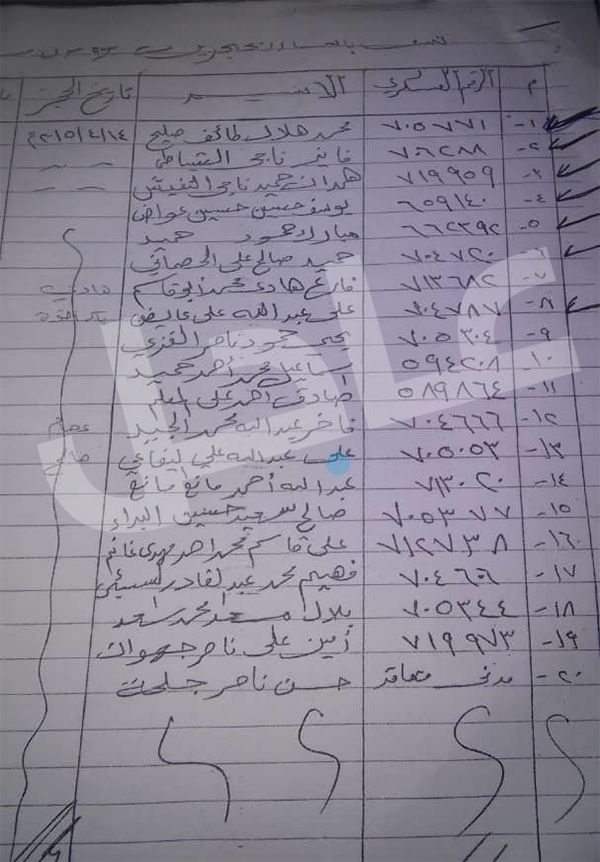 كشف بأسماء المحتجزين
م الرقم العسكري الاسم تاريخ الحجز
١- ٧٠٥٧٧١ محمد هلال طائف صليح ٢٠١٥/٤/١٤م
٢- ٧٠٦٢٨٨ فايز ناجي
٣- ٧١٩٩٥٩ همدان حميد ناجي النفيش
٤- ٦٥٩١٤٠ يوسف حسين حسين عواض
٥- ٦٦٢٣٩٢ مبارك حمود حميد
٦- ٧٠٤٧٢٠ حميد صالح علي
٧- ٧١٣٦٨٢ فارع هادي محمد أبو قاسم
٨- ٧٠٤٧٨٧ علي عبدالله علي عايض
٩- ٧٠٥٣٠٤ يحيى حمود ناصر
١٠- ٥٩٤٢٠٨ محمد أحمد حميد
١١- ٥٨٩٨٦٤ صادق أحمد علي
١٢- ٧٠٤٦٦٦ فاخر عبدالله محمد الجبيد عصام
١٣- ٧٠٥٠٥٣ علي عبدالله علي ليفاعي صالح
١٤- ٧١٣٠٢٠ عبدالله أحمد مانع مانع
١٥- ٧٠٥٣٧٧ صالح سعيد حسين البداء
١٦- ٧١٢٧٣٨ علي قاسم محمد احمد مهدي غانم
١٧- ٧٠٤٦٠٦ فهيم محمد عبدالقادر
١٨- ٧٠٥٣٤٤ بلال مسعد محمد راشد
١٩- ٧١٩٩٧٣ أمين علي ناصر جهوان
٢٠- مدني متعاقد حسن ناصر جلحة
عاجل